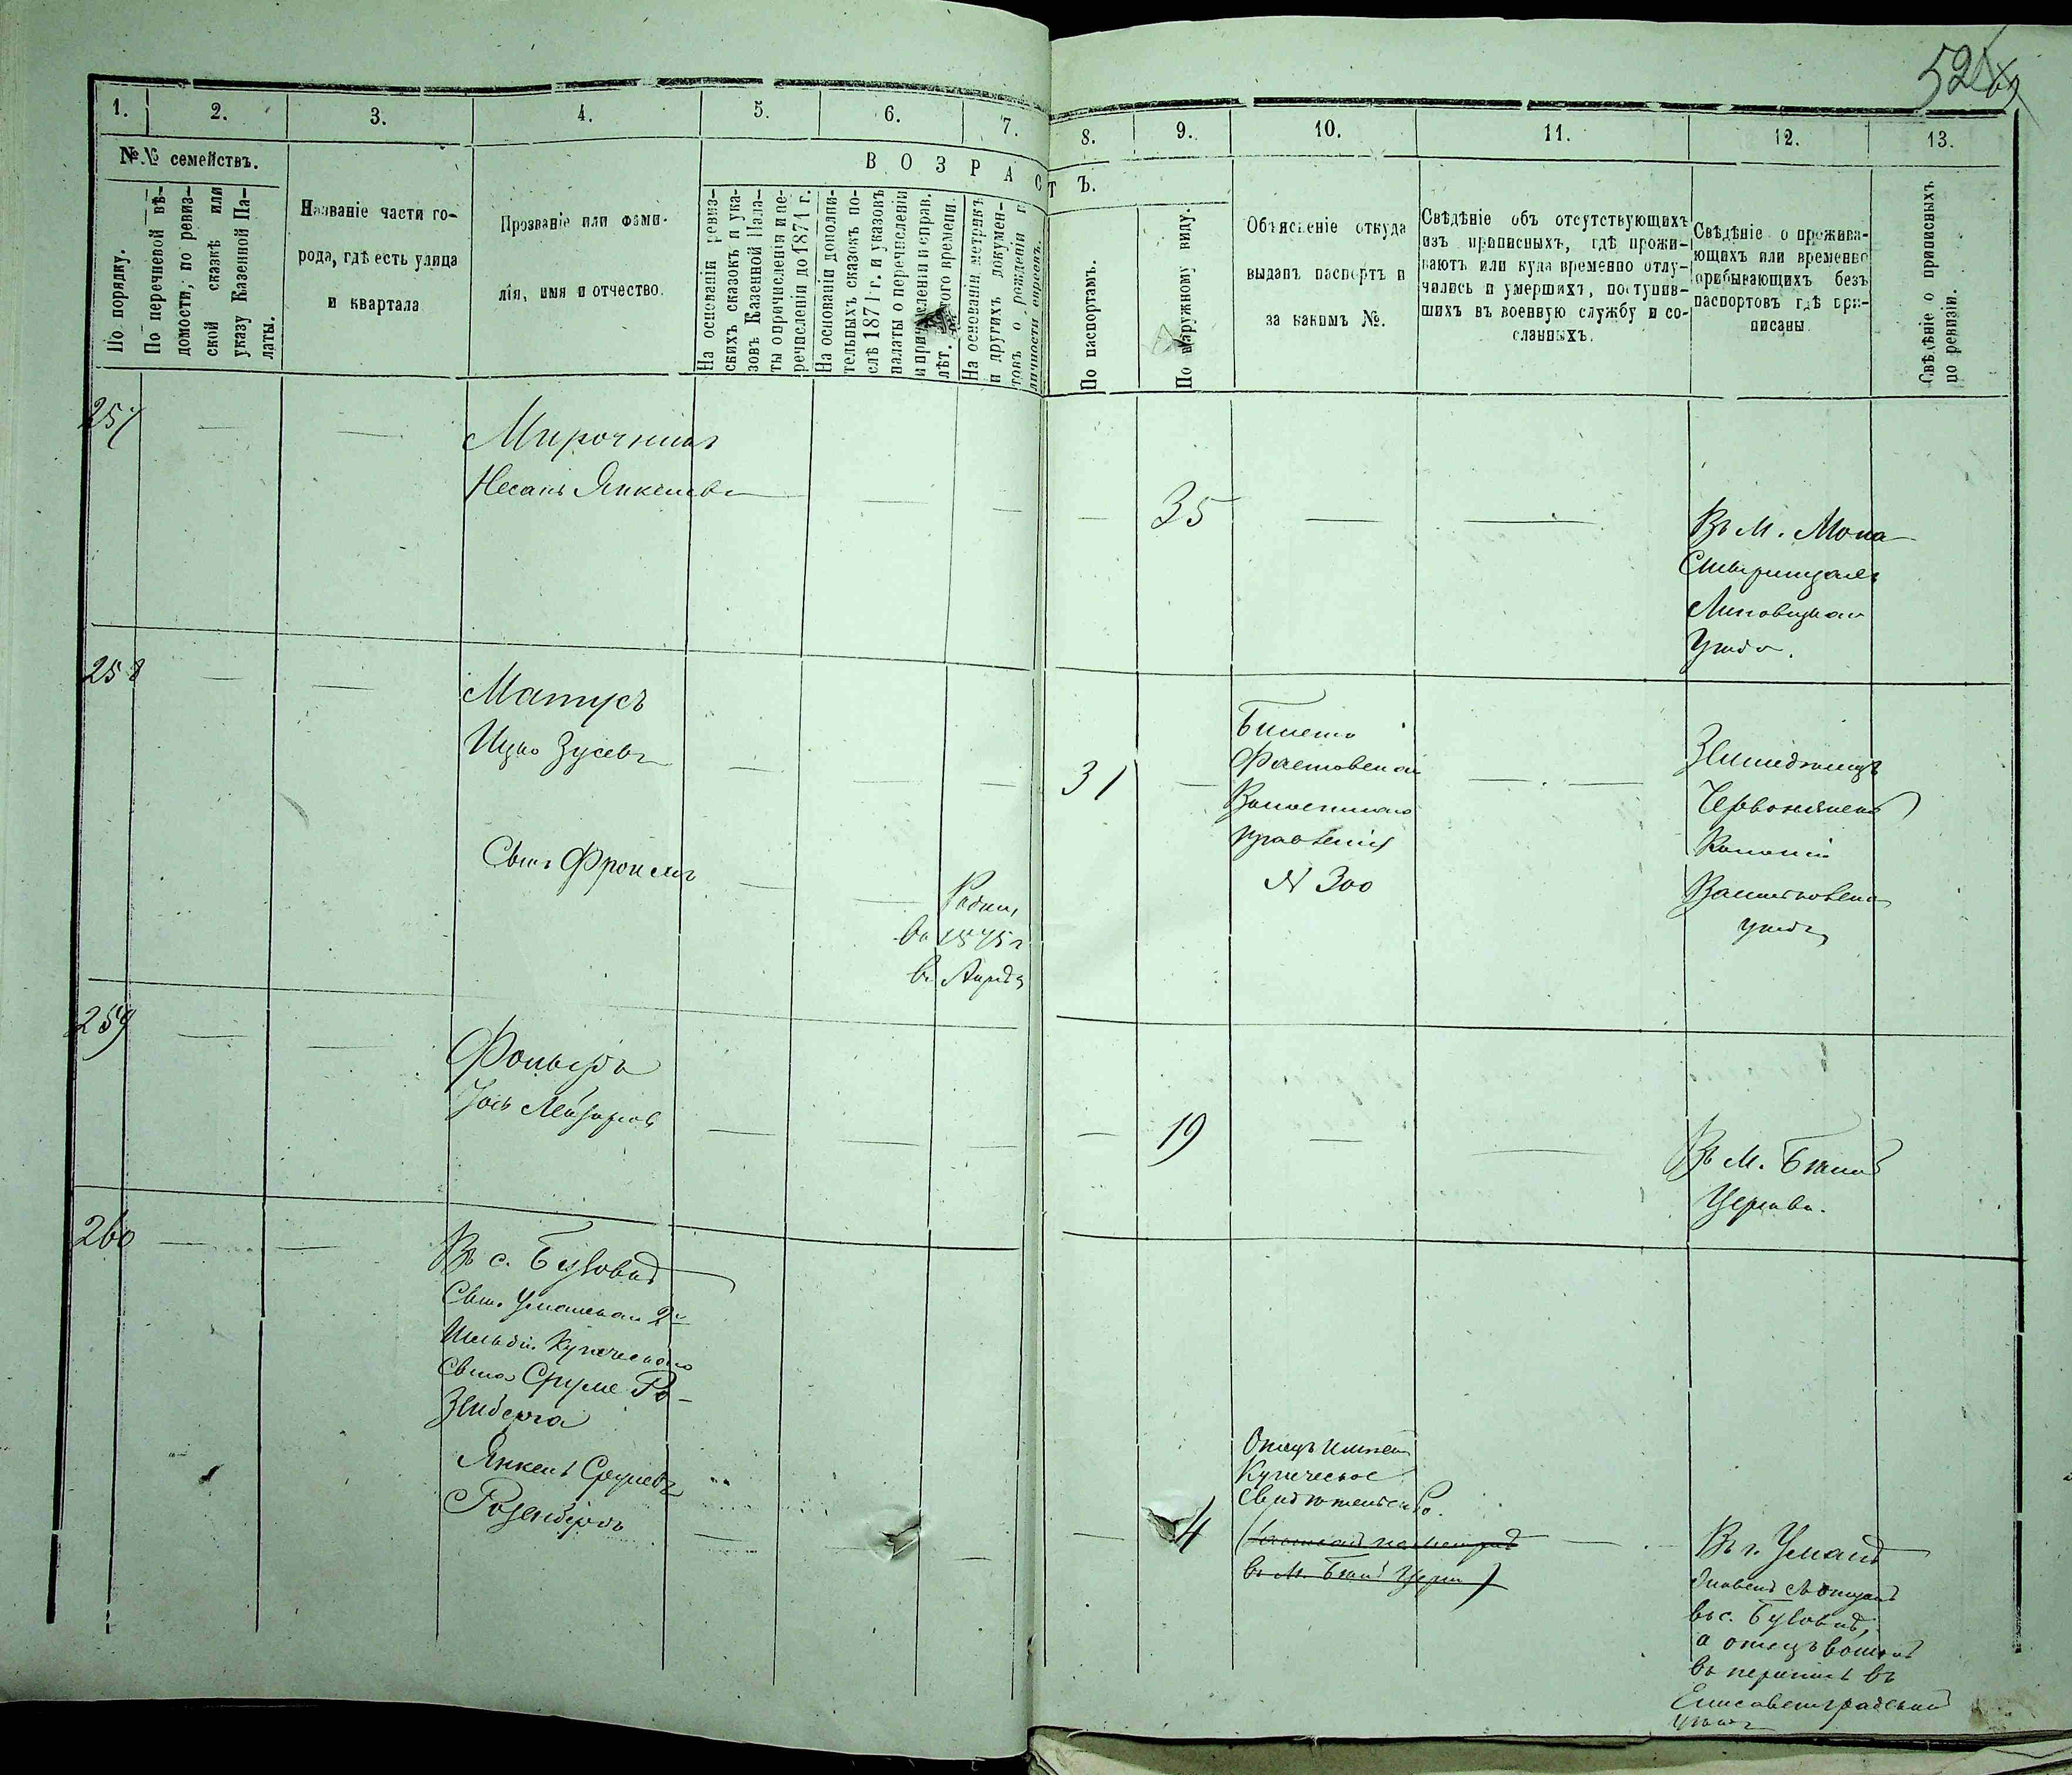 52
1. 2. 3. 4. 5. 6. 7. 8. 9. 10. 11. 12. 13.
№№ семействъ.
По порядку.
По перечневой вѣ-
домости, по ревиз-
ской сказкѣ или
указу Казенной Па-
латы.
Названіе части го-
рода, гдѣ есть улица
и квартала
Прозваніе или фами-
лія, имя и отчество.
ВОЗРАСТЪ.
На основаніи ревиз-
скихъ сказокъ и ука-
зовъ Казенной Пала-
ты о причисленіи и пе-
речисленіи до 1871 г.
На основаніи дополни-
тельныхъ сказокъ по-
слѣ 1871 г. и указовъ
палаты о перечисленіи
и причисленіи и справ.
лѣт. этого времени.
На основаніи метрикъ
и другихъ докумен-
товъ о рожденіи г.
личности евреевъ.
По паспортамъ.
По наружному виду.
Объясненіе откуда
выданъ паспортъ и
за какимъ №.
Свѣдѣніе объ отсутствующихъ
изъ приписныхъ, гдѣ прожи-
ваютъ или куда временно отлу-
чились и умершихъ, поступив-
шихъ въ военную службу и со-
сланныхъ.
Свѣдѣніе о прожива-
ющихъ или временно
прибывающихъ безъ
паспортовъ гдѣ при-
писаны
Свѣдѣніе о приписныхъ
по ревизіи.
257
Мирочникъ
Несанъ Янкелевъ
35
Въ М. Мона
стырищахъ
Липовецкаго
Уѣзда.
258
Матусъ
Ицко Зусевъ
Сынъ Фроимъ
Родил.
въ 1875 г
въ Апрѣлѣ
31
Билетъ
Фастовскаго
Волостнаго
Правленія
№ 300
Земледѣлецъ
Червонянской
Колоніи
Васильковскаго
уѣзда
259
Фольеръ
Іось Лейзоровъ
19
Въ М. Бѣлой
Церкви.
260
Въ с. Бузовкѣ
Сынъ Уманскаго 2й
Гильдіи Купеческаго
Сына Сруля Ро-
зенберга
Янкель Срулевъ
Розенбергъ
4
Отецъ имѣетъ
Купеческое
Свидѣтельство.
въ М. Бѣлой Церкви)
Въ г. Умани
въ с. Бузовкѣ,
а отецъ вошелъ
въ перепись въ
Елисаветградскій
уѣздъ